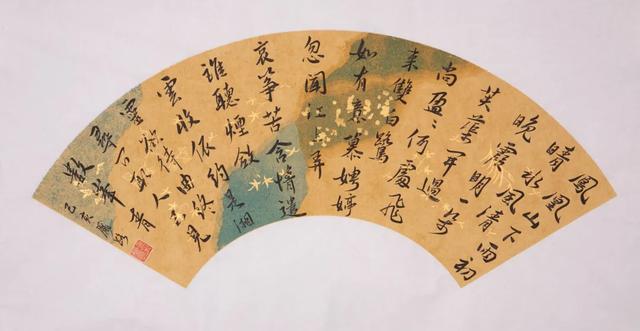 鳳凰山下雨初
晴水風清
晚霞明一朵
芙蕖開過
尚盈盈何處飛
來雙白鷺
如有意慕娉婷
忽聞江上弄
哀箏苦含情遣
誰聽煙斂
雲收依約是湘
靈欲待曲終
尋問取人不見
數峯青
己亥慶